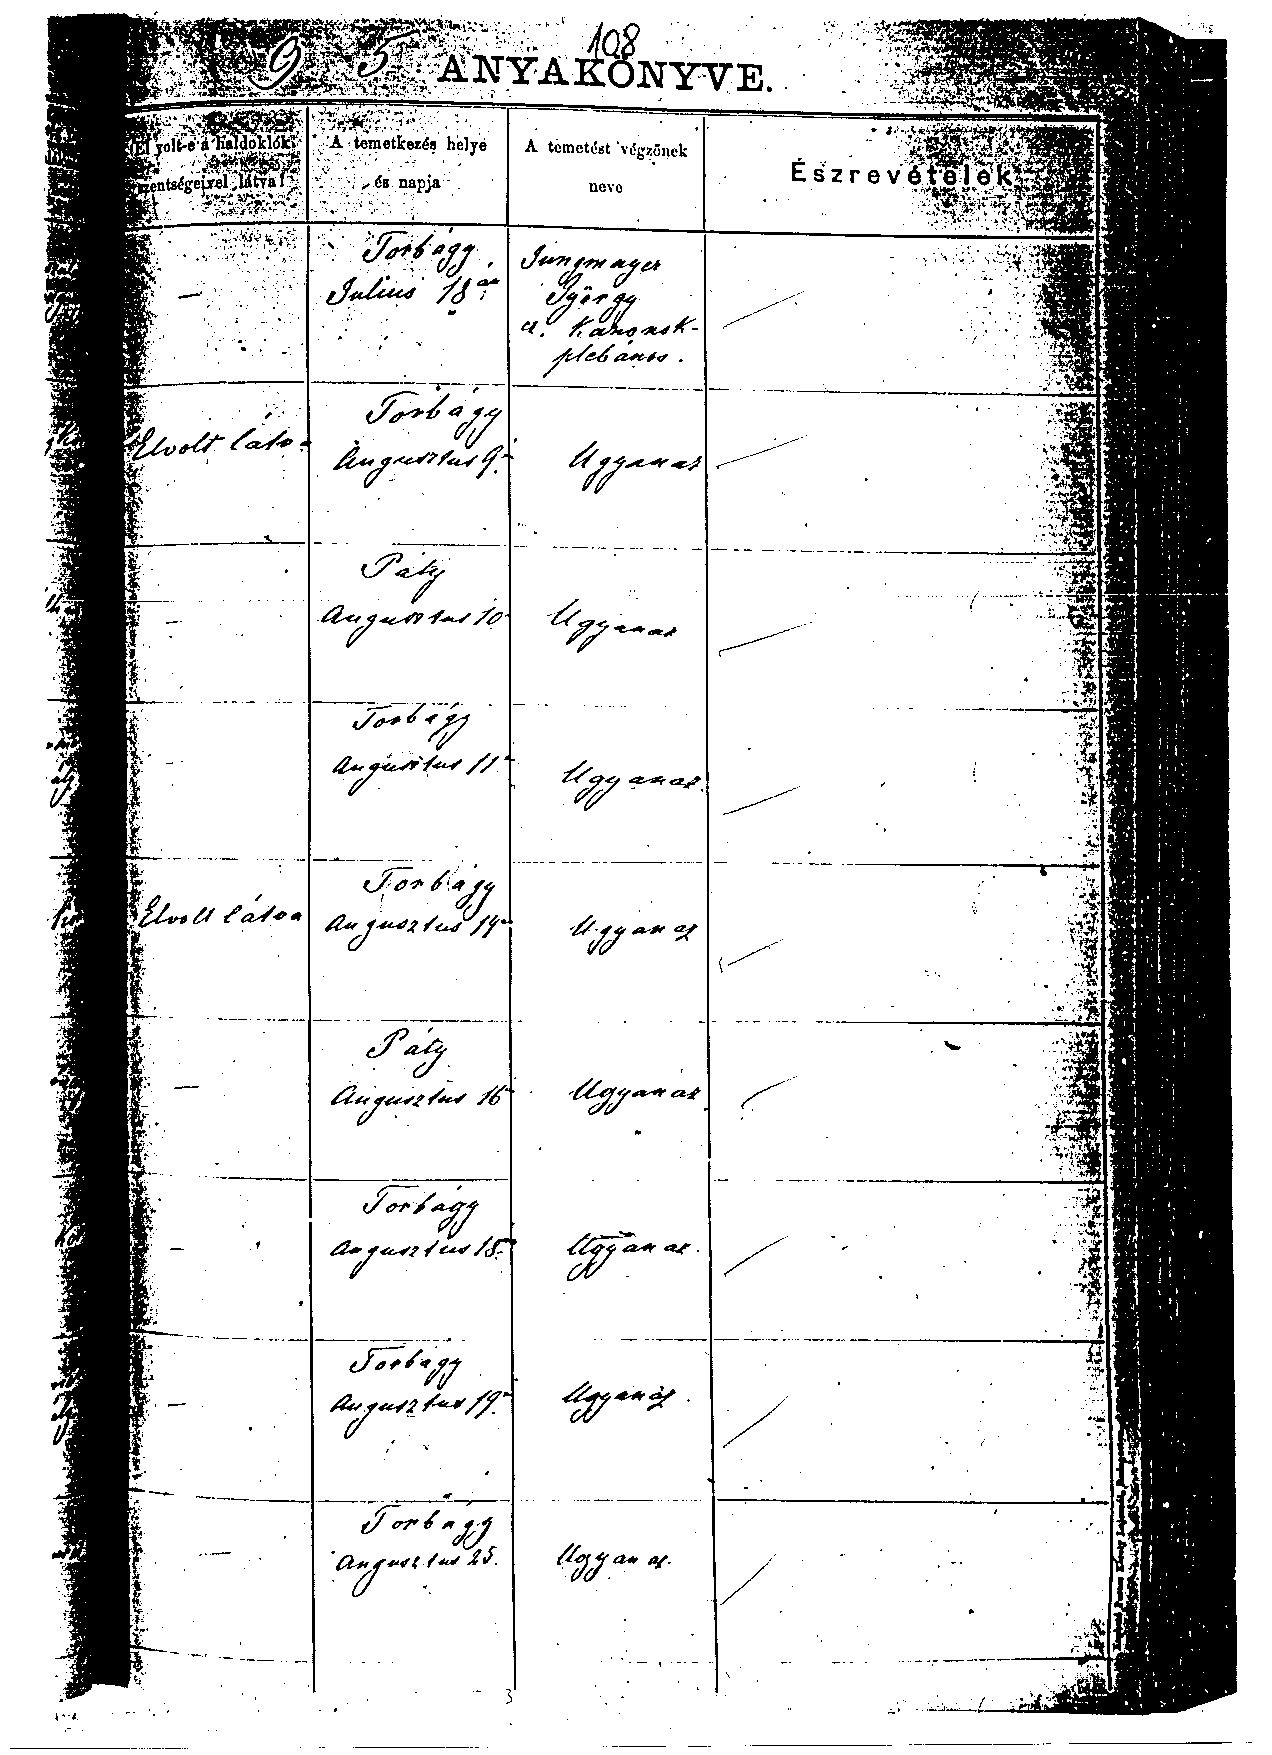 108
9 5 ANYAKÖNYVE.
El volt-e a haldoklók
szentségeivel látva?
A temetkezés helye
és napja
A temetést végzőnek
neve
Észrevételek
Torbágy
Julius 18án
—
Jungmayer
György
cz. Kanonok-
plebános.
Elvolt látva
Torbágy
Augusztus 9.
Ugyanaz
—
Páty
Augusztus 10
Ugyanaz
—
Torbágy
Augusztus 11
Ugyanaz
Elvolt látva
Torbágy
Augusztus 14
Ugyanaz
—
Páty
Augusztus 16
Ugyanaz
—
Torbágy
Augusztus 15
Ugyanaz.
—
Torbágy
Augusztus 19
Ugyanaz.
—
Torbágy
Augusztus 25.
Ugyanaz.